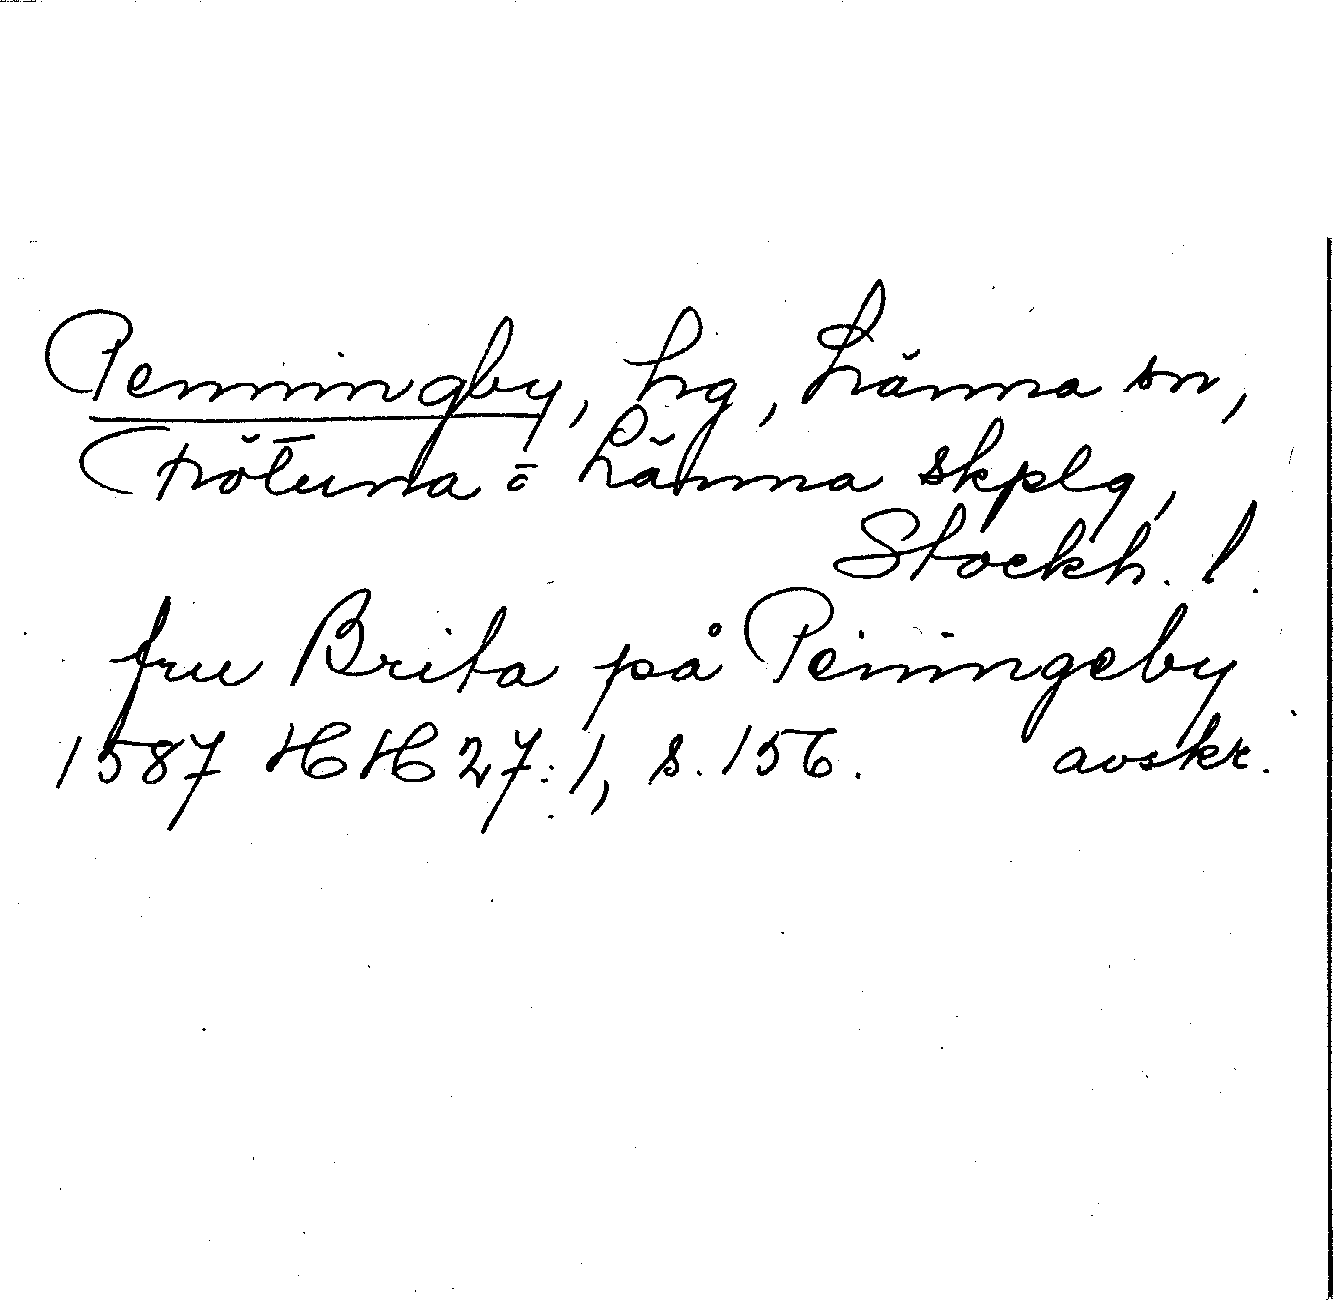 Penningby, hg, Länna sn,
Frötuna o Länna skplg,
Stockh. l.
fru Brita på Peningeby
1587 HH 27:1, s. 156. avskr.